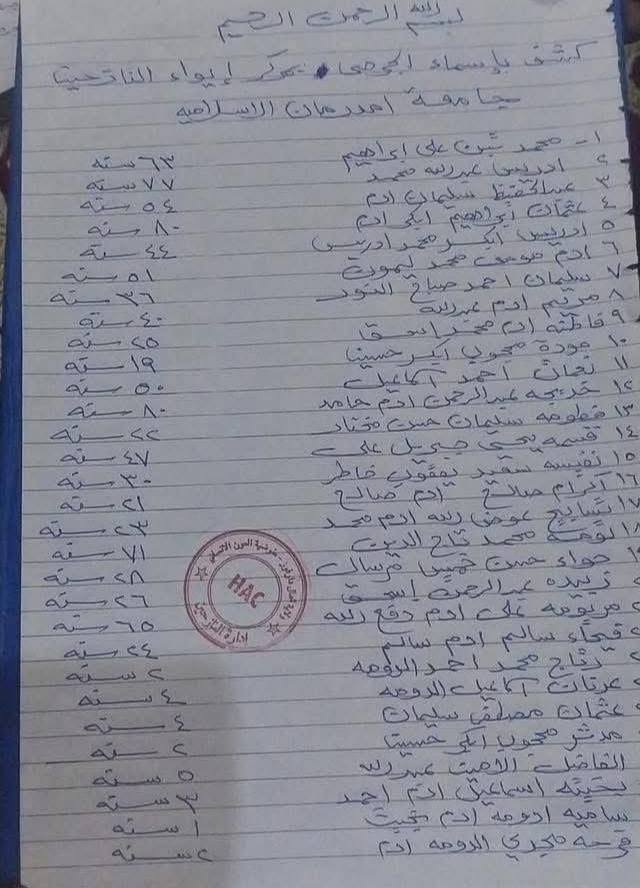 بسم الله الرحمن الرحيم
كشف بإسماء الجرحى بمركز إيواء النازحين
جامعة امدرمان الاسلامية
١- محمد شين على ابراهيم ٦٣ سنه
٢ ادريس عبدالله محمد ٧٧ سنه
٣ عبدالحفيظ سليمان ادم ٥٤ سنه
٤ عثمان ابراهيم ابكر ادم ٨٠ سنه
٥ ادريس ابكر محمد ادريس ٤٤ سنه
٦ ادم موسى محمد ٥١ سنه
٧ سليمان احمد صباح النور ٣٦ سنه
٨ مريم ادم عبدالله ٤٠ سنه
٩ فاطنه ادم محمد اسحق ٢٥ سنه
١٠ محجوب ابكر ١٩ سنه
١١ احمد اسماعيل ٥٠ سنه
١٢ خديجه عبدالرحمن ادم حامد ٨٠ سنه
١٣ سليمان حسن مختار ٢٢ سنه
١٤ قسمه يحي جبريل على ٤٧ سنه
١٥ نفيسه سعيد يعقوب خاطر ٣٠ سنه
١٦ اكرام صالح ادم صالح ٢١ سنه
تسابيح عوض الله ادم محمد ٢٣ سنه
محمد تاج الدين ٧١ سنه
حواء حسن خميس مرسال ٢٨ سنه
زبيده عبدالرحمن اسحق ٢٦ سنه
مريومه على ادم دفع الله ٦٥ سنه
سالم ادم سالم ٢٤ سنه
رتاج محمد احمد الدومه ٢ سنه
اسماعيل الدومه ٤ سنه
عثمان مصطفى سليمان ٤ سنه
مدثر محجوب ٢ سنه
الفاضل الامين عبدالله ٥ سنه
بخيته اسماعيل ادم احمد ٣ سنه
ساميه ادومه ادم بخيت ١ سنه
فرحه مجدي الدومه ادم ٢ سنه
HAC
ادارة النازحين